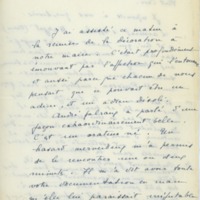 J'ai assisté, ce matin à
la remise de la décoration à
notre maire. C'était profondément
émouvant par l'affection qui l'entoure
et aussi parce que chacun de nous
pensait que ce pouvait être un
adieu, et un adieu désolé.
André a parlé d'une
façon extraordinairement belle.
C'est un orateur né ! Un
hasard merveilleux m'a permis
de le rencontrer une ou deux
minutes. Il m'a dit avoir toute
votre documentation en main
et elle lui paraissait